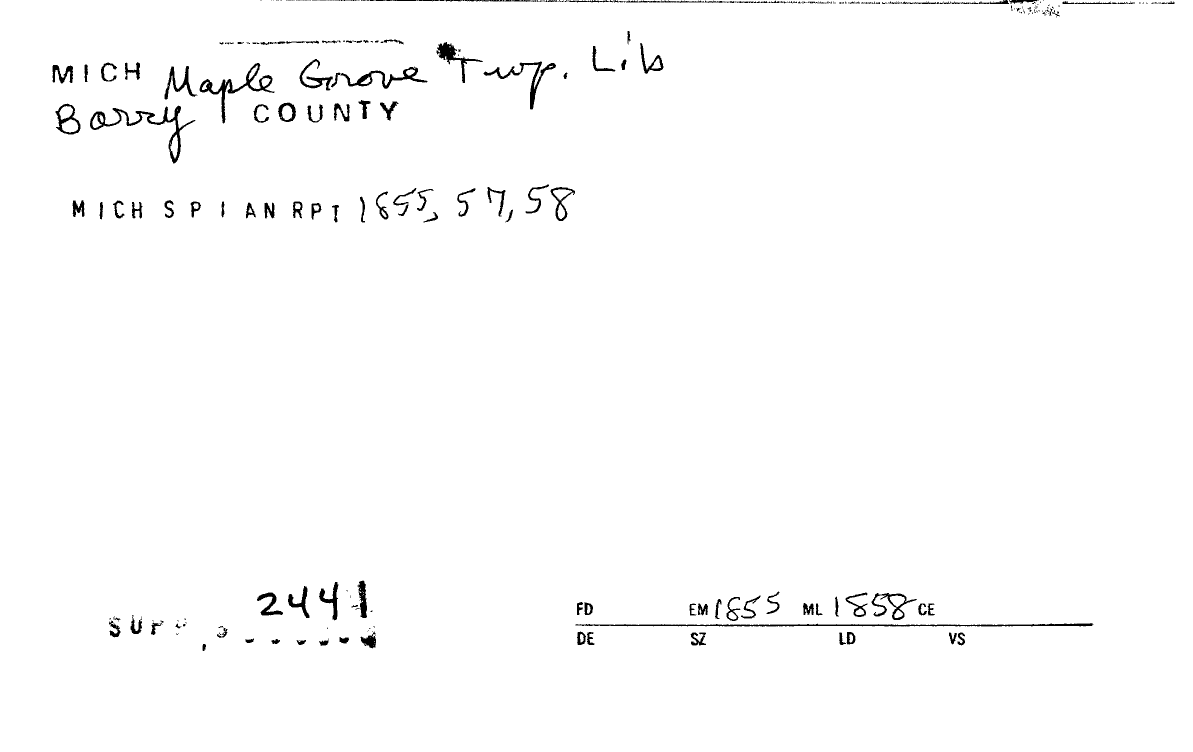 MICH Maple Grove Twp. Lib
Barry COUNTY
MICH SPI AN RPT 1855, 57, 58
2441
FD EM 1855 ML 1858 CE
DE SZ LD VS